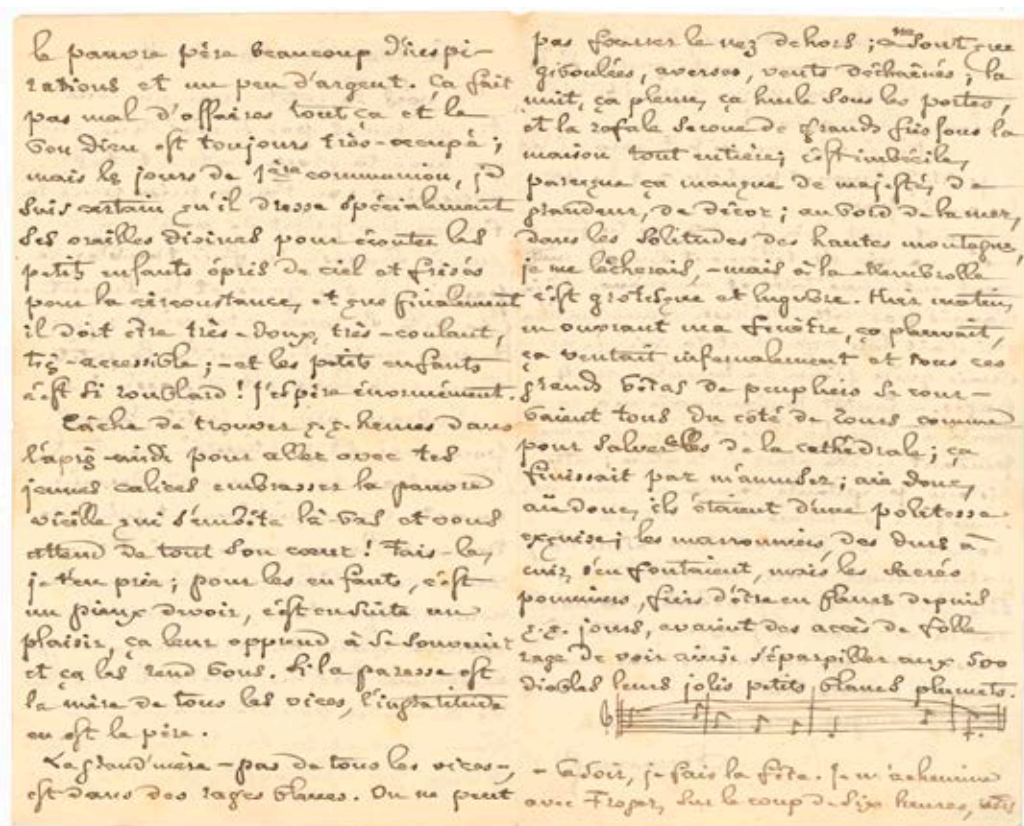 le pauvre père beaucoup d'inspi-
rations et un peu d'argent. Ça fait
pas mal d'affaires tout ça et le
bon Dieu est toujours très-occupé ;
mais les jours de 1ère communion, je
suis certain qu'il dresse spécialement
ses oreilles divines pour écouter les
petits enfants épris de ciel et frisés
pour la circonstance, et que finalement
il doit être très-doux, très-coulant,
très-accessible ; – et les petits enfants
c'est si roublard ! J'espère énormément.
Tâche de trouver q.q. heures dans
l'après-midi pour aller avec tes
jeunes calices embrasser la pauvre
vieille qui s'embête là-bas et vous
attend de tout son cœur ! Fais-le,
je t'en prie ; pour les enfants, c'est
un pieux devoir, c'est ensuite un
plaisir, ça leur apprend à se souvenir
et ça les rend bons. Si la paresse est
la mère de tous les vices, l'ingratitude
en est la père.
La grand'mère – pas de tous les vices –,
est dans des rages blanches. On ne peut
pas fourrer le nez dehors ; ce ne sont que
giboulées, averses, vents déchaînés ; la
nuit, ça pleure, ça hurle sous les portes,
et la rafale secoue de grands frissons la
maison tout entière ; c'est imbécile,
parceque ça manque de majesté, de
grandeur, de décor ; au bord de la mer,
dans les solitudes des hautes montagnes,
je me lâcherais, – mais à la Membrolle
c'est grotesque et lugubre. Hier matin,
en ouvrant ma fenêtre, ça pleuvait,
ça ventait infernalement et tous ces
grands bêtas de peupliers se cour-
baient tous du côté de Tours comme
pour saluer les de la cathédrale ; ça
finissait par m'amuser ; aïe donc,
aïe donc, ils étaient d'une politesse
exquise ; les marronniers, des durs à
cuir, s'en foutaient, mais les sacrés
pommiers, fiers d'être en blancs depuis
q.q. jours, avaient des accès de folle
rage de voir ainsi s'éparpiller aux 500
diables leurs jolis petits blancs plumets.
– Le soir, je fais la fête. Je m'achemine
avec Froger, sur le coup de six heures,